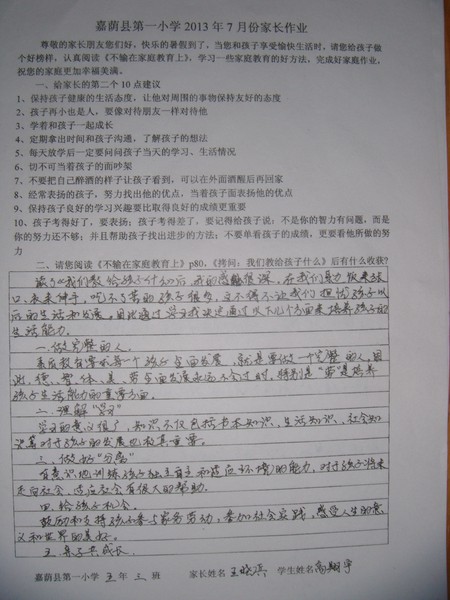 嘉荫县第一小学 2013 年 7 月份家长作业
尊敬的家长朋友您们好，快乐的暑假到了，当您和孩子享受愉快生活时，请您给孩子做
个好榜样，认真阅读《不输在家庭教育上》，学习一些家庭教育的好方法，完成好家庭作业，
祝您的家庭更加幸福美满。
一、给家长的第二个 10 点建议
1、保持孩子健康的生活态度，让他对周围的事物保持友好的态度
2、孩子再小也是人，要像对待朋友一样对待他
3、学着和孩子一起成长
4、定期拿出时间和孩子沟通，了解孩子的想法
5、每天放学后一定要问问孩子当天的学习、生活情况
6、切不可当着孩子的面吵架
7、不要把自己醉酒的样子让孩子看到，可以在外面酒醒后再回家
8、经常表扬的孩子，努力找出他的优点，当着孩子面表扬他的优点
9、保持孩子良好的学习兴趣要比取得良好的成绩更重要
10、孩子考得好了，要表扬；孩子考得差了，要记得给孩子说：不是你的智力有问题，而是
你的努力还不够；并且帮助孩子找出进步的方法；不要单看孩子的成绩，更要看他所做的努
力
二、请您阅读《不输在家庭教育上》p80，《拷问：我们教给孩子什么》后有什么收获？
读了《我们教给孩子什么》后，我的感触很深。在我们身边饭来张
口、衣来伸手，吃不了苦的孩子很多，不不得不让我们担忧孩子以
后的生活和发展。因此通过学习我决定通过以下几个方面来培养孩子的
生活能力。
一、做完整的人。
素质教育要求每个孩子全面发展，就是要做一个完整的人。因
此，德、智、体、美、劳全面发展永远不会过时，特别是“劳”是培养
孩子生活能力的重要方面。
二、理解“学习”
学习的意义很广，知识不仅包括书本知识，生活知识、社会知
识等对于孩子的发展也极其重要。
三、做好“分离”
有意识地训练孩子独立自主和适应环境的能力，对于孩子将来
走向社会，适应社会有很大的帮助。
四、给孩子机会。
鼓励和支持孩子参与家务劳动，参加社会实践，感受人生的意
义和世界的美好。
五、亲子共成长。
嘉荫县第一小学 五 年 三 班 家长姓名 王晓滨 学生姓名 高翔宇